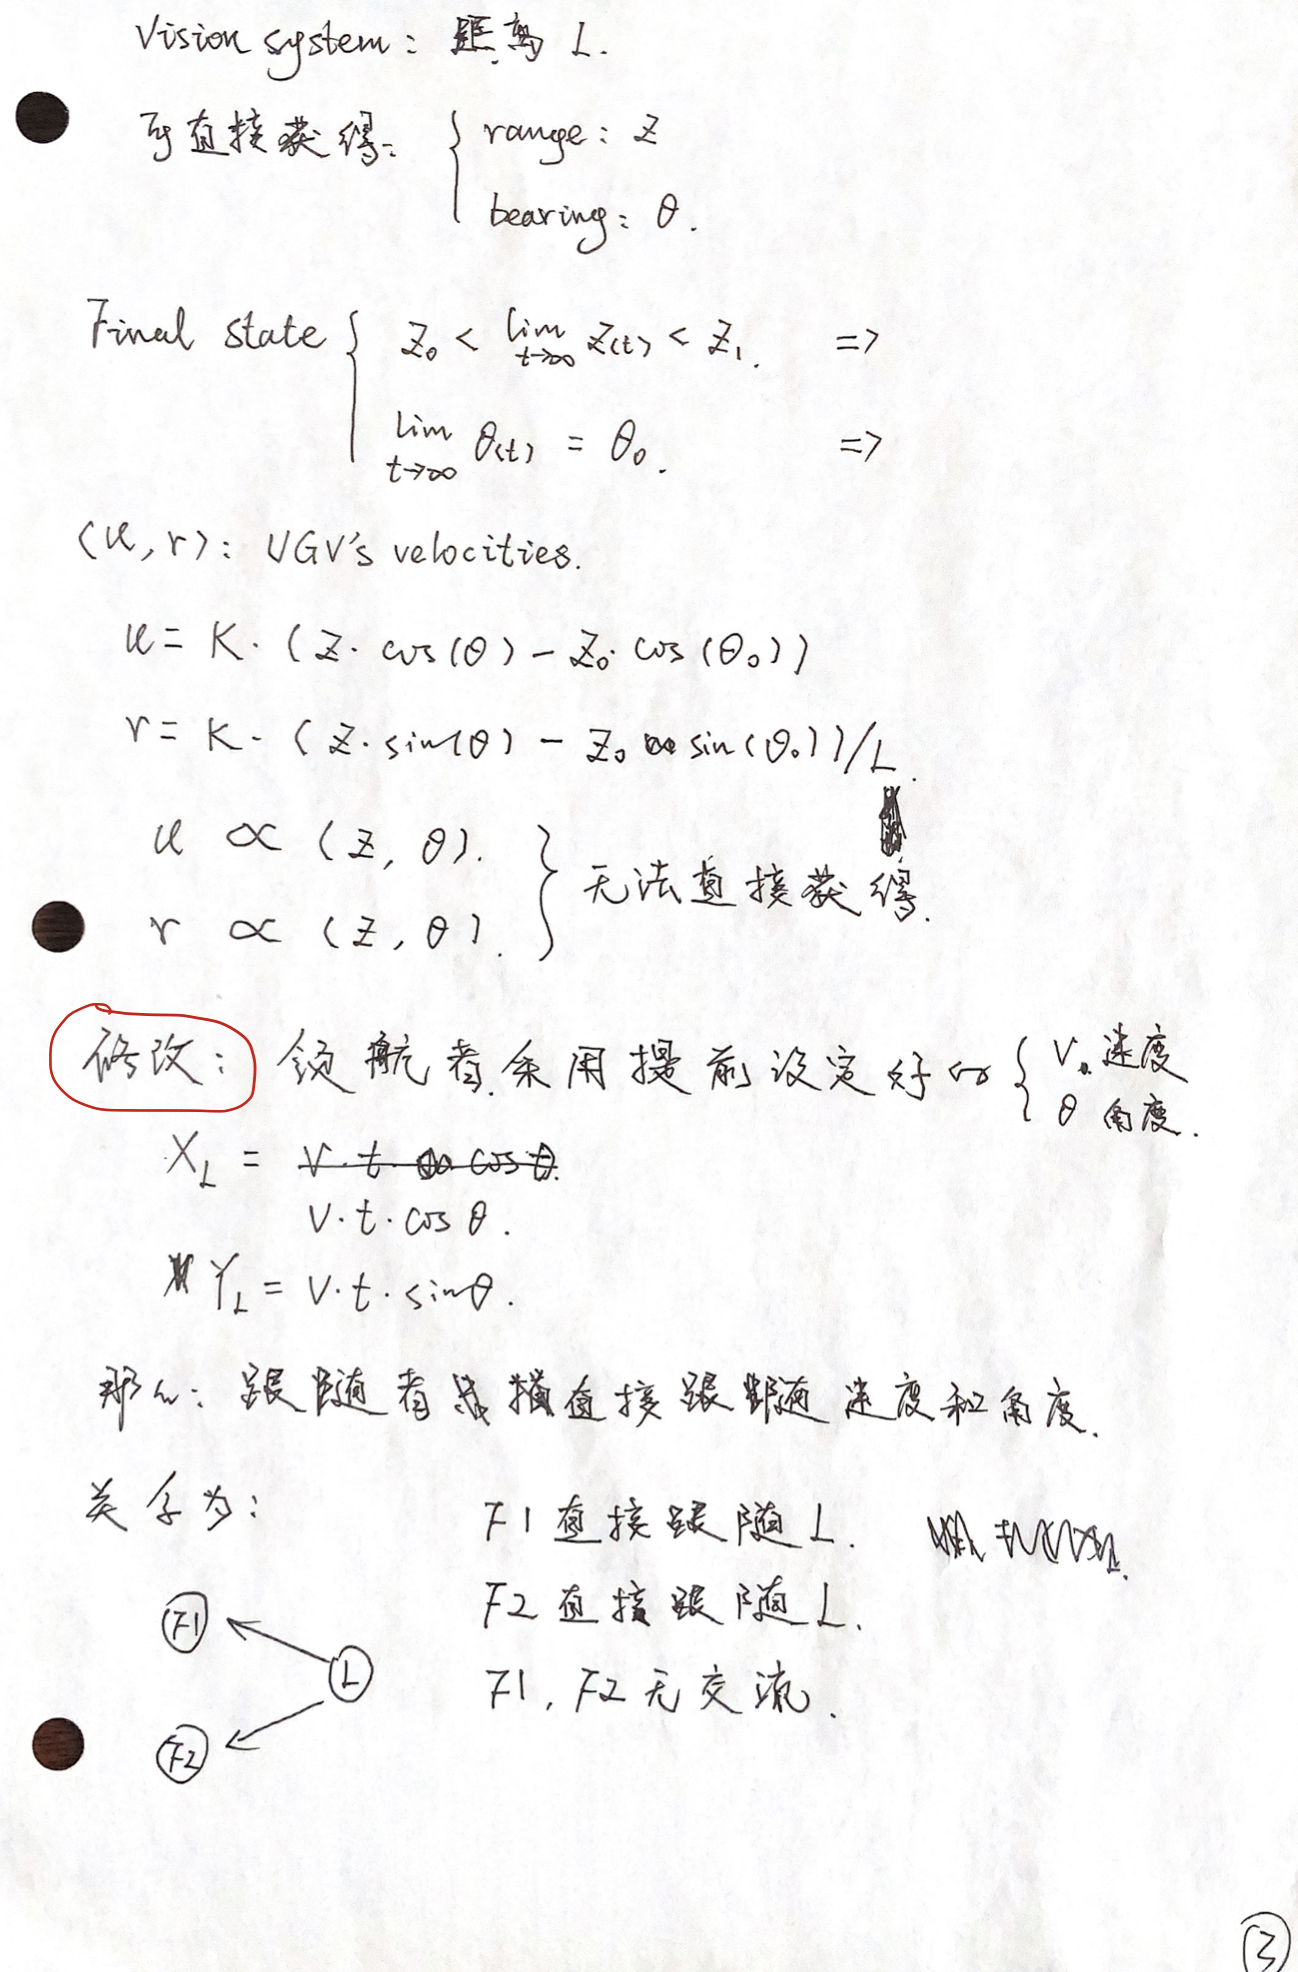 Vision system: 距离 L.
可直接获得: { range: Z
bearing: θ.
Final state { Z₀ < lim t→∞ Z(t) < Z₁. =>
lim t→∞ θ(t) = θ₀. =>
(u, r): UGV's velocities.
u = K · (Z · cos(θ) - Z₀ · cos(θ₀))
r = K · (Z · sin(θ) - Z₀ sin(θ₀))/L.
u ∝ (Z, θ).
r ∝ (Z, θ). } 无法直接获得.
修改: 领航者采用提前设定好的 { V. 速度
θ 角度.
X_L = V · t · cos θ.
V · t · cos θ.
Y_L = V · t · sinθ.
那么: 跟随者直接跟随速度和角度.
关系为:
F1 直接跟随 L.
F2 直接跟随 L.
F1, F2 无交流.
F1
L
F2
3